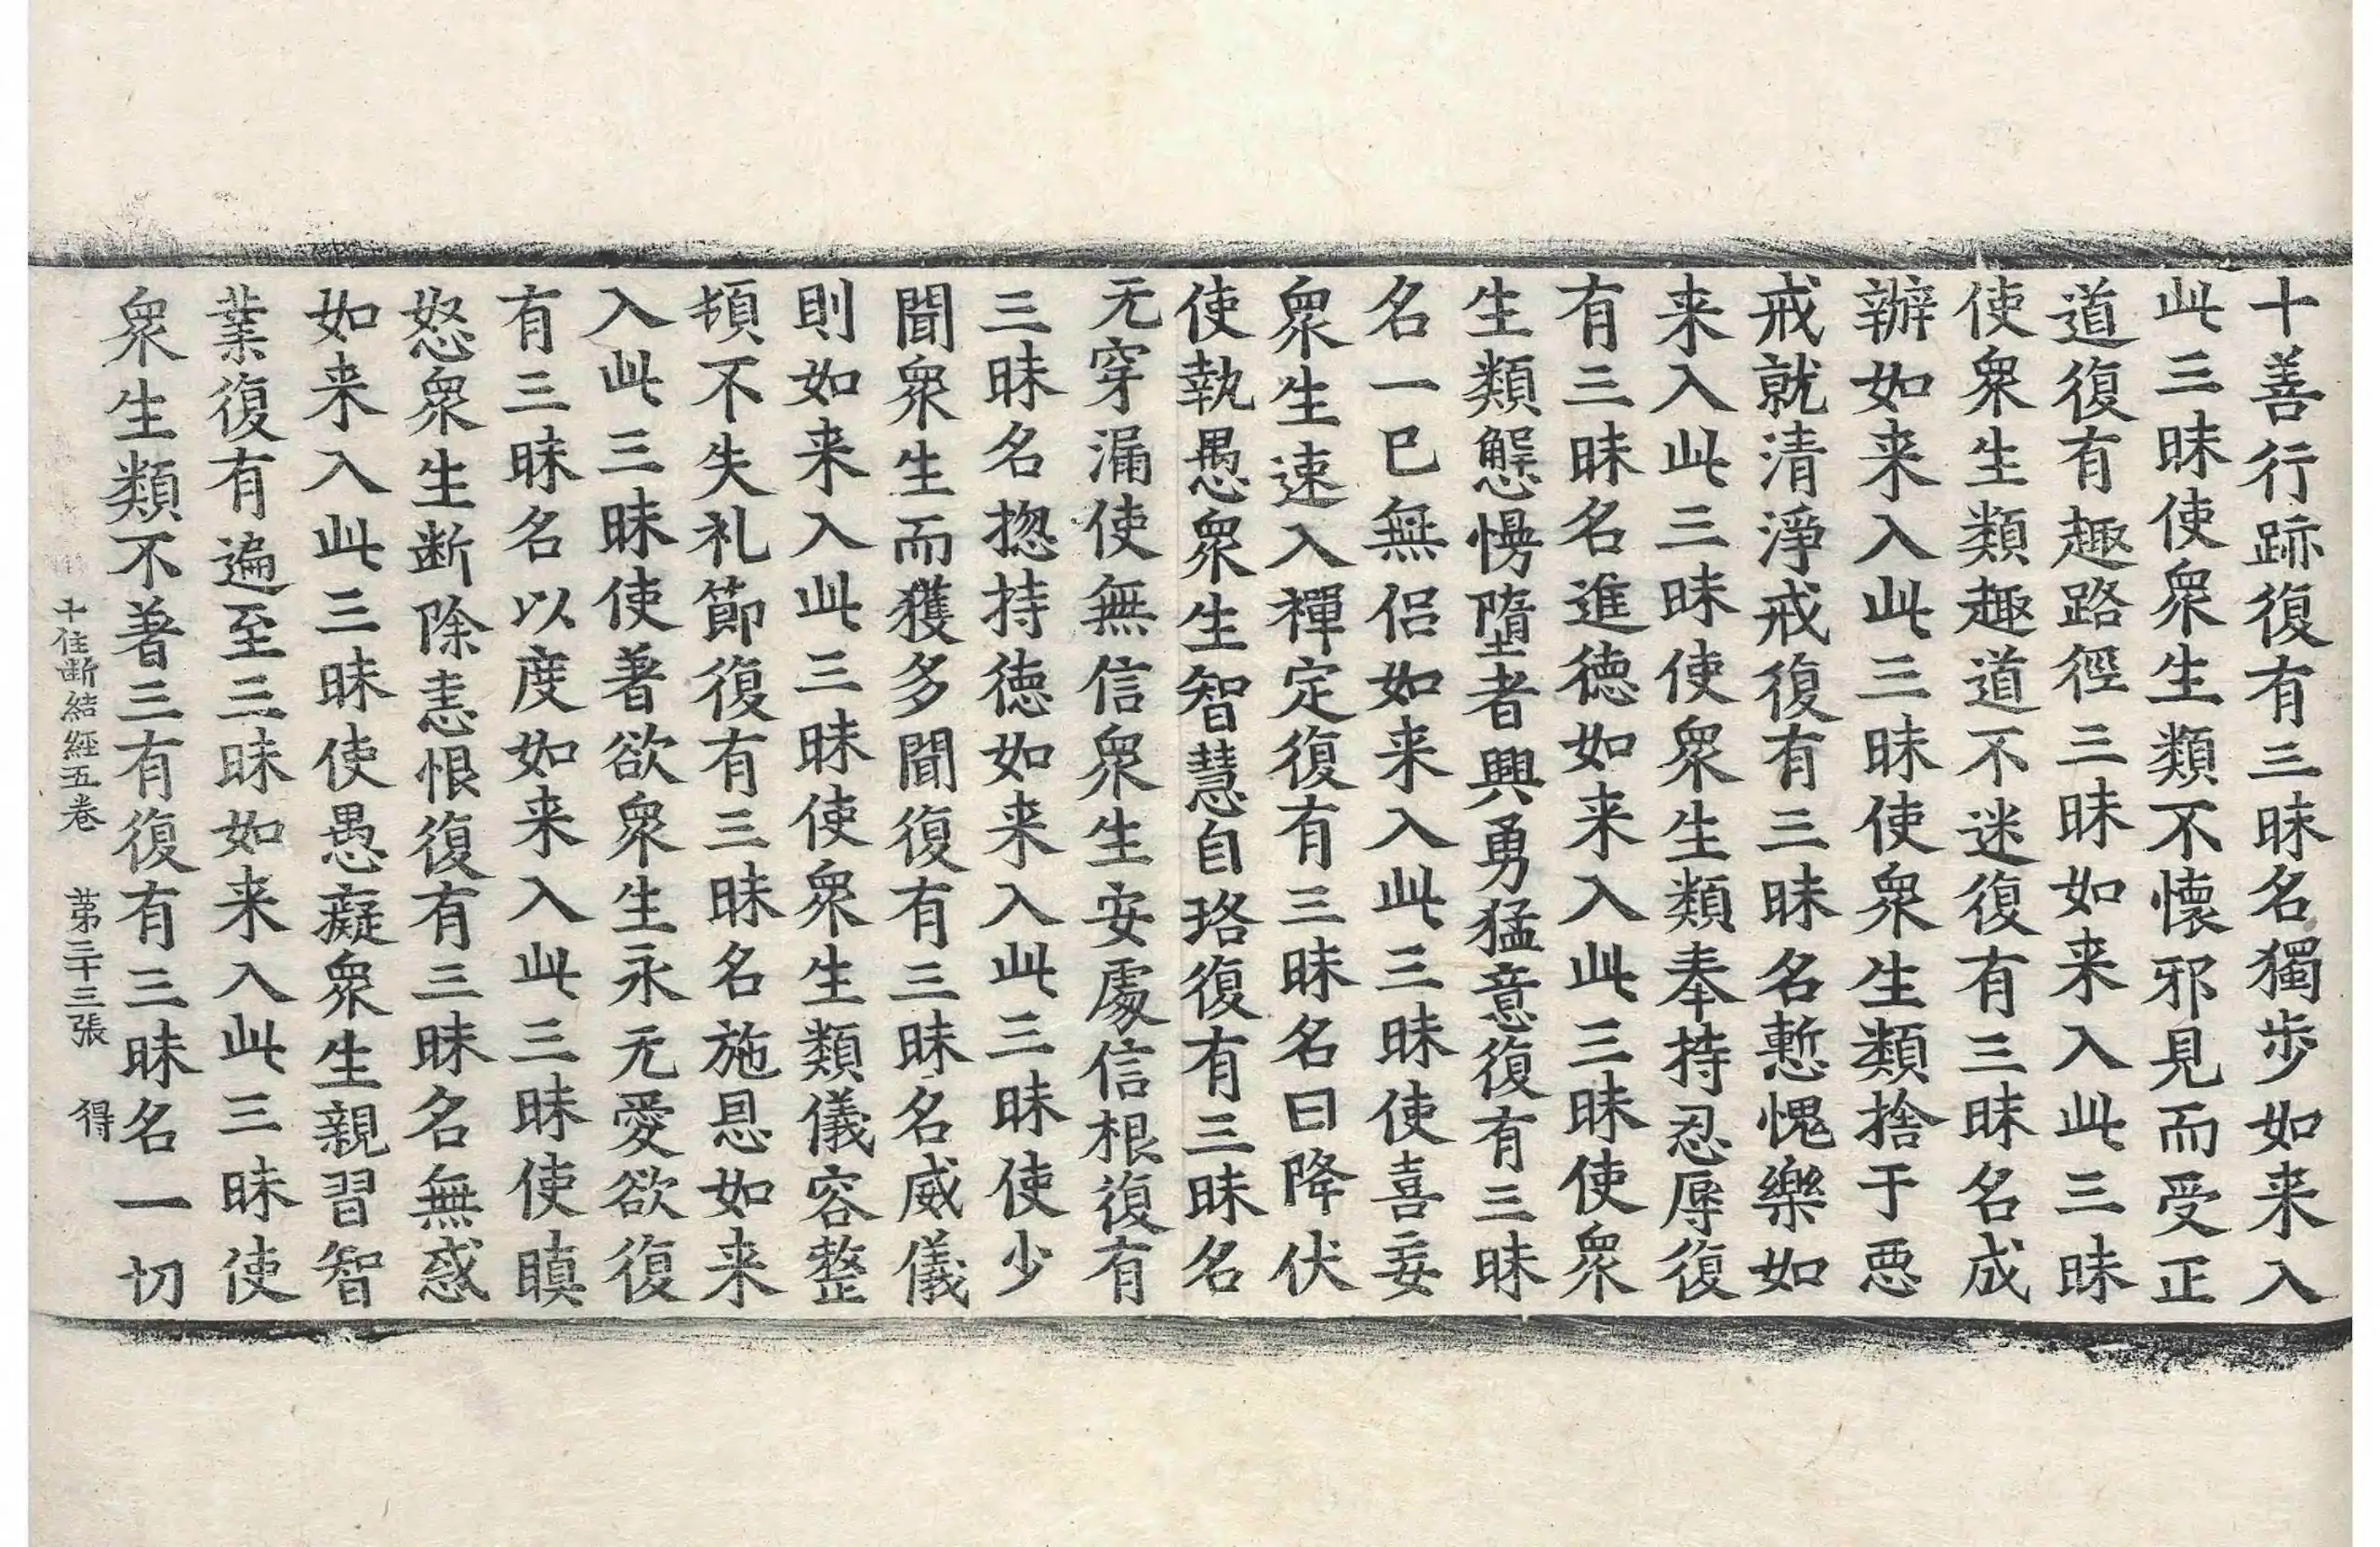 十善行跡復有三昧名獨步如来入
此三昧使衆生類不懷邪見而受正
道復有趣路徑三昧如来入此三昧
使衆生類趣道不迷復有三昧名成
辦如来入此三昧使衆生類捨于惡
戒就清淨戒復有三昧名慙愧樂如
来入此三昧使衆生類奉持忍辱復
有三昧名進德如来入此三昧使衆
生類懈慢墮者興勇猛意復有三昧
名一已無侶如来入此三昧使喜妄
衆生速入禪定復有三昧名曰降伏
使執愚衆生智慧自珞復有三昧名
无穿漏使無信衆生安處信根復有
三昧名揔持德如来入此三昧使少
聞衆生而獲多聞復有三昧名威儀
則如来入此三昧使衆生類儀容整
頓不失礼節復有三昧名施恩如来
入此三昧使著欲衆生永无愛欲復
有三昧名以度如来入此三昧使瞋
怒衆生断除恚恨復有三昧名無惑
如来入此三昧使愚癡衆生親習智
業復有遍至三昧如来入此三昧使
衆生類不著三有復有三昧名一切
十住断結經五卷 苐二十三張 得